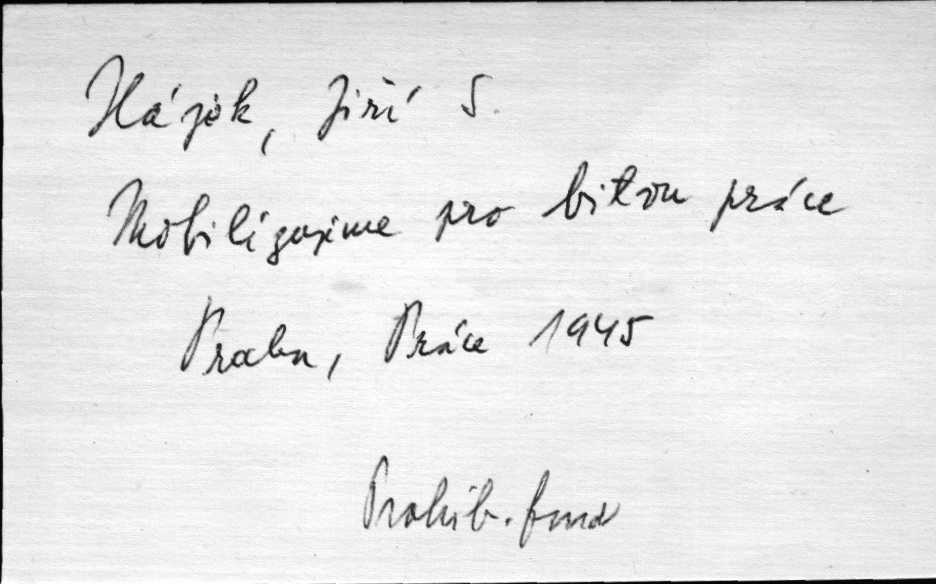 Hájek, Jiří S.
Mobilizujeme pro bitvu práce
Praha, Práce 1945
Prohib. fond